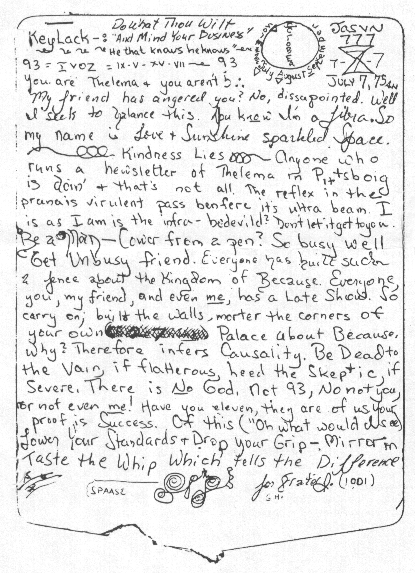 Do What Thou Wilt
KeyLack - "And Mind Your Business"
He that knows he knows
93 = IVOZ = IX-V-XV-VII 93
JASVN
777
7-Z-7
JULY 7, 75
you are Thelema & you aren't
My friend has angered you? No, dissapointed. Well
I seek to balance this. You know I'm a Libra. So
my name is Love & Sunshine sparkled Space.
Kindness Lies Anyone who
runs a newsletter of Thelema in Pittsboig
is doin' & that's not all. The reflex in the
pranais virulent pass benfere it's ultra beam. I
is as I am is the infra-bedevild? Dont let it get to you.
Be a Man - Cower from a pen? So busy well
Get Unbusy friend. Everyone has built such
a fence about the Kingdom of Because. Everyone,
you, my friend, and even me, has a Late Show. So
carry on, build the walls, morter the corners of
your own Palace about Because.
why? Therefore infers Causality. Be Dead to
the Vain, if flatterous, heed the Skeptic, if
Severe. There is No God. Not 93, No not you,
or not even me! Have you eleven, they are of us your
proof is Success. Of this ("Oh what would
Lower your Standards & Drop your Grip - Mirror
Taste the Whip Which tells the Difference
SPAASZ
for Frater (1001)